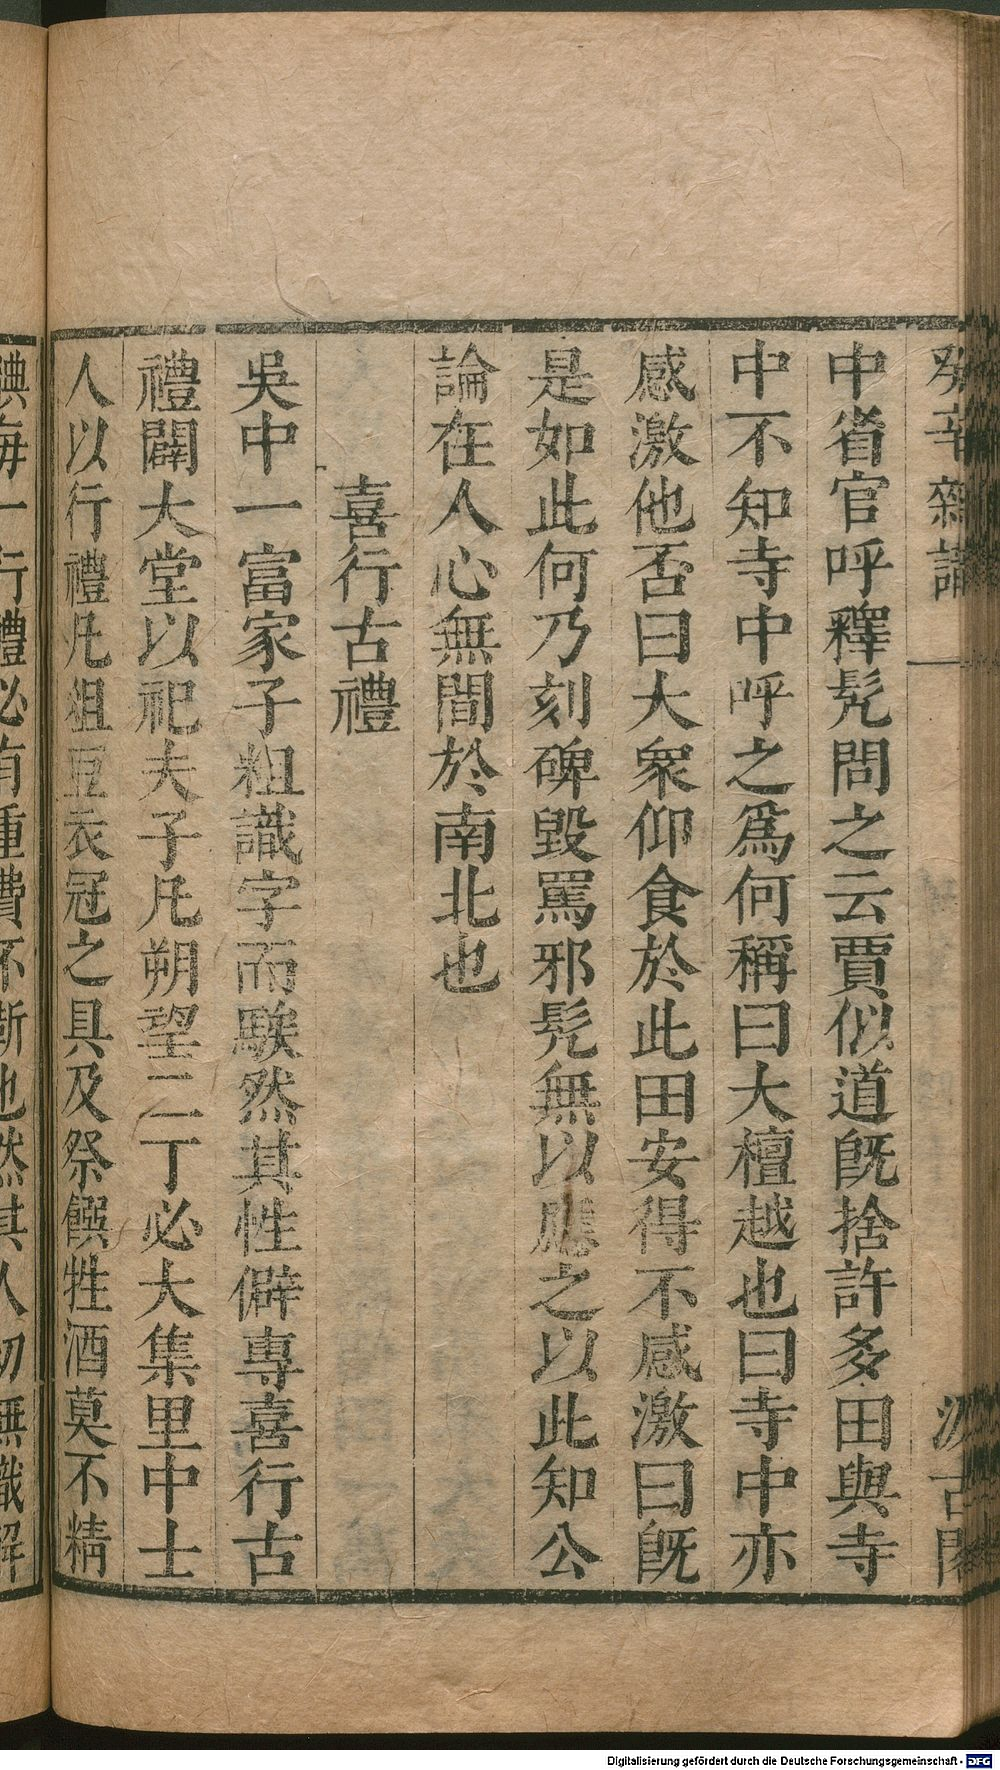 癸辛雜識
汲古閣
中省官呼釋髡問之云賈似道旣捨許多田與寺
中不知寺中呼之爲何稱曰大檀越也曰寺中亦
感激他否曰大衆仰食於此田安得不感激曰旣
是如此何乃刻碑毀罵邪髡無以應之以此知公
論在人心無間於南北也
喜行古禮
吳中一富家子粗識字而騃然其性僻專喜行古
禮闢大堂以祀夫子凡朔望二丁必大集里中士
人以行禮凡俎豆衣冠之具及祭饌牲酒莫不精
腆每一行禮必有重費不靳也然其人初無識解
Digitalisierung gefördert durch die Deutsche Forschungsgemeinschaft - DFG